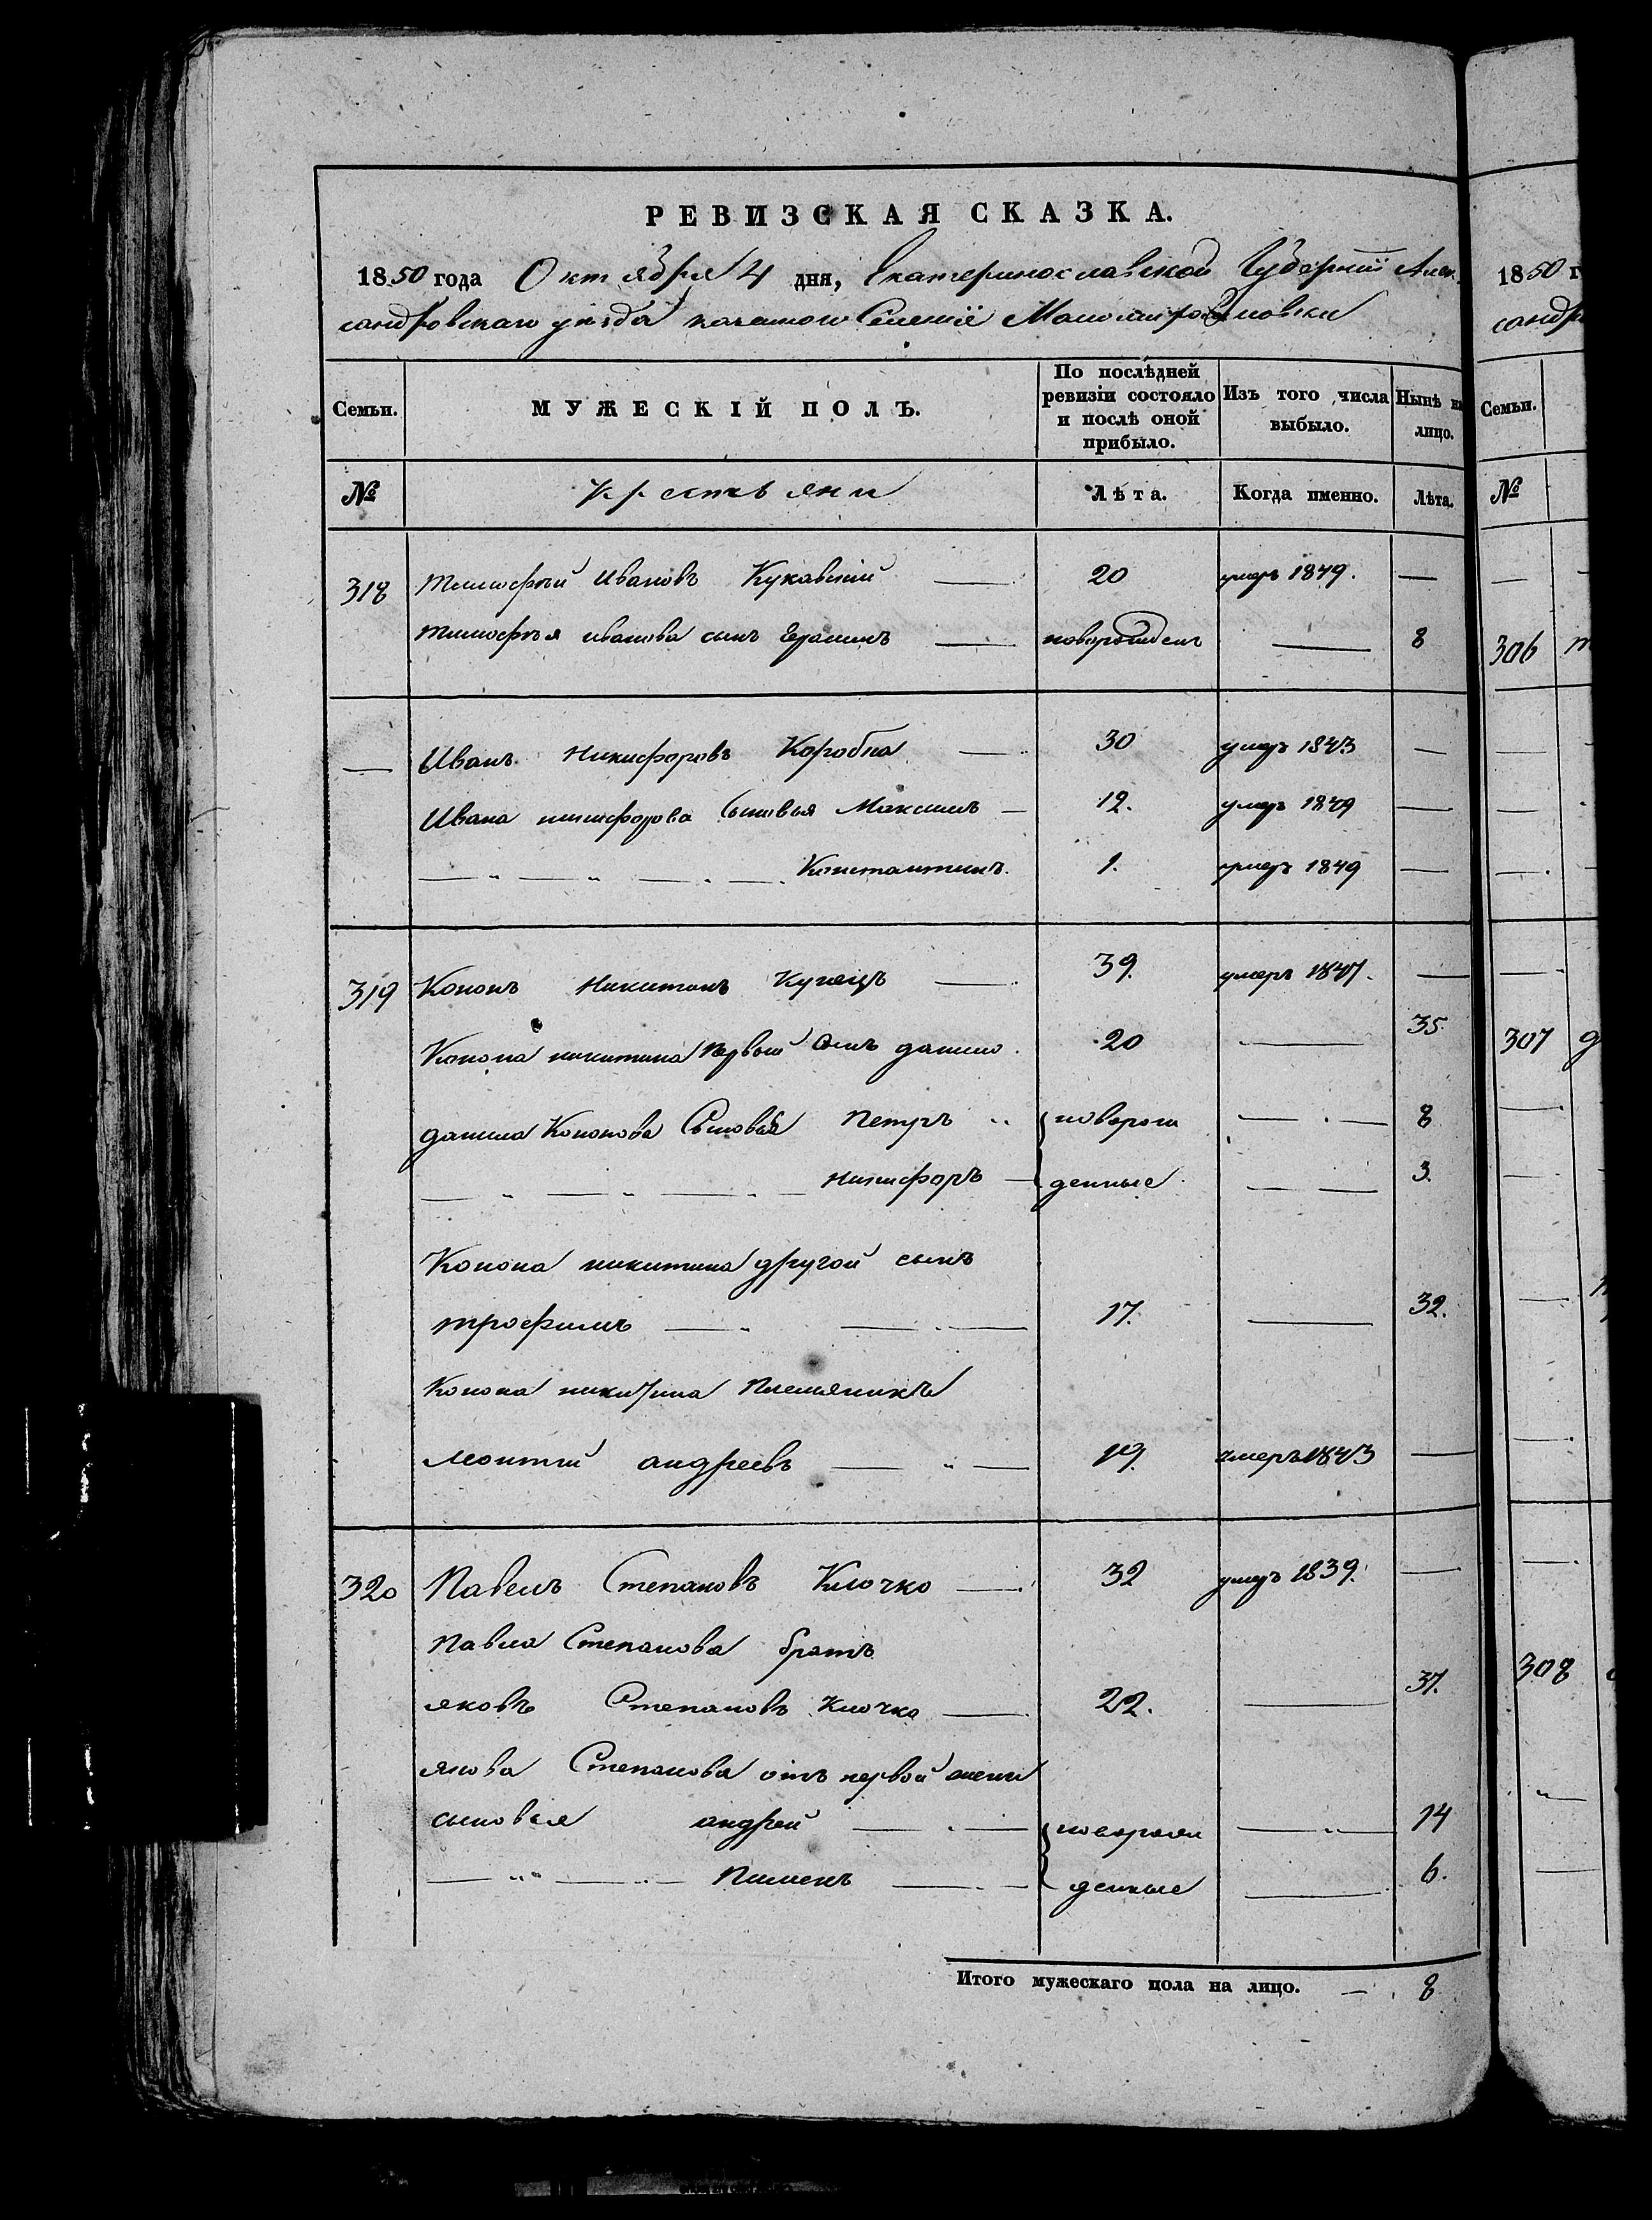 РЕВИЗСКАЯ СКАЗКА.
1850 года Октября 4 дня, Екатеринославской Губернiи Алек-
сандровскаго уезда казеннаго Селенiе
Семьи. МУЖЕСКІЙ ПОЛЪ. По послѣдней ревизіи состояло и послѣ оной прибыло. Изъ того числа выбыло. Нынѣ на лицо.
№ Крестьяни Лѣта. Когда именно. Лѣта.
318 Тимофѣй Ивановъ Кукавскiй — 20 умеръ 1849. —
Тимофѣя иванова сынъ — новорожденъ — 8
— Иванъ Никифоровъ Коробка — 30 умеръ 1843 —
Ивана никифорова Сыновья Максимъ — 12. умеръ 1849 —
— „ — „ — „ — Константинъ. 1. умеръ 1849 —
319 Кононъ Никитинъ — 39. умеръ 1847. —
Конона никитина Первый Сынъ данило. 20 — 35.
данила Кононова Сыновья Петръ „ новорож — 8
— „ — „ — „ — никифоръ — денные — 3.
Конона никитина другой сынъ
трофимъ — „ — „ — 17. — 32.
Конона никитина Племяникъ
леонтiй андреевъ — „ — 19. умеръ 1843 —
320 Павелъ Степановъ Клочко — 32 умеръ 1839. —
Павла Степанова братъ
яковъ Степановъ Клочко — 22. — 37.
якова Степанова отъ первой жени
сыновья андрей — „ — новорож — „ — 14
— „ — „ — Пименъ — „ — денные — 6.
Итого мужескаго пола на лицо. — 8
1850 г
сандр
Семьи.
№
306
307
308